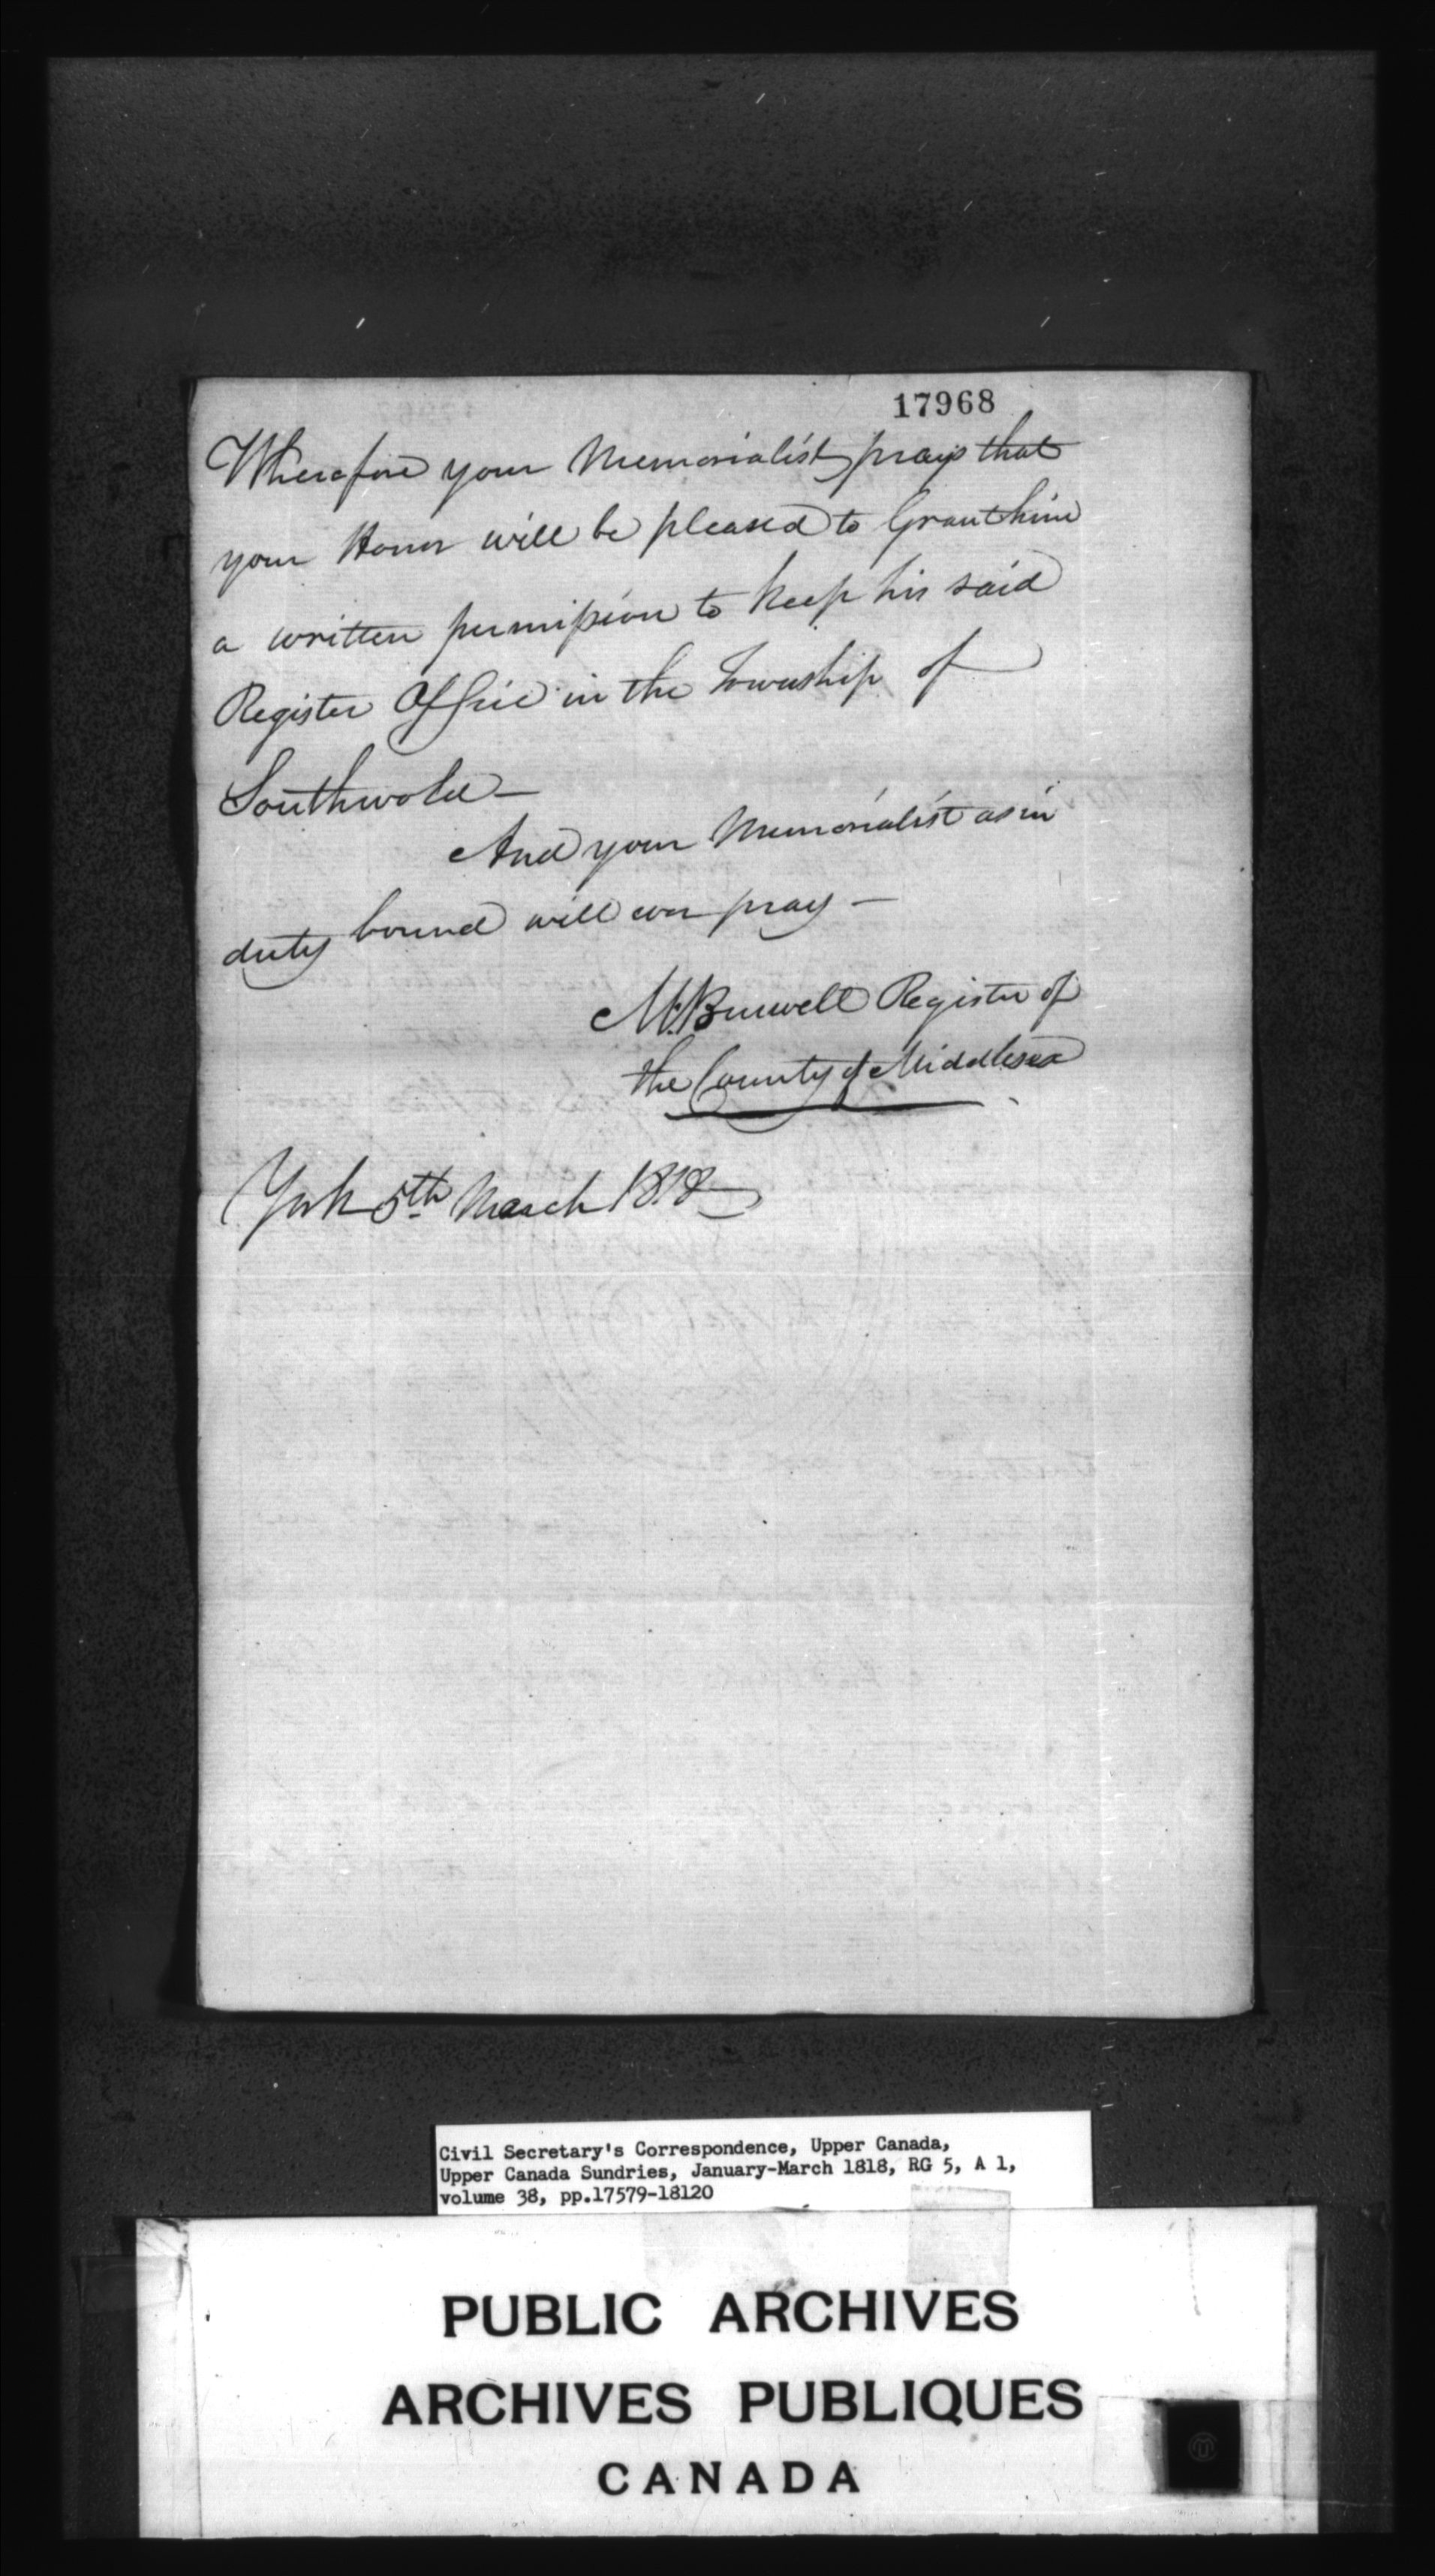 17968
Wherefore your Memorialist prays that
your Honor will be pleased to Grant him
a written permission to keep his said
Register Office in the Township of
Southwold —
And your Memorialist as in
duty bound will ever pray —
M. Burwell Register of
the County of Middlesex
York 5th March 1818
Civil Secretary's Correspondence, Upper Canada,
Upper Canada Sundries, January-March 1818, RG 5, A 1,
volume 38, pp.17579-18120
PUBLIC ARCHIVES
ARCHIVES PUBLIQUES
CANADA